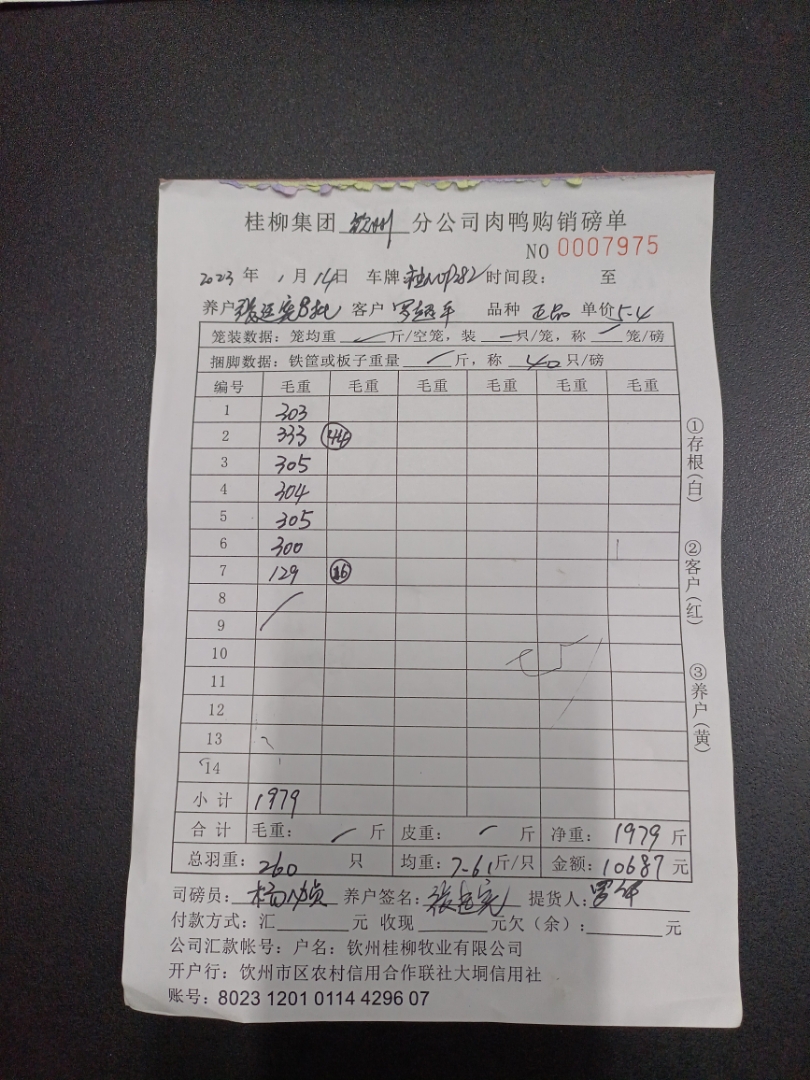 桂柳集团 钦州 分公司肉鸭购销磅单
NO 0007975
2023 年 1 月 14日 车牌 时间段: 至
养户 客户 品种 正品 单价 5-4
笼装数据: 笼均重 / 斤/空笼, 装 一 只/笼, 称 / 笼/磅
捆脚数据: 铁筐或板子重量 / 斤, 称 40 只/磅
编号 毛重 毛重 毛重 毛重 毛重 毛重
1 303
2 333 44
3 305
4 304
5 305
6 300
7 129 16
8
9
10
11
12
13
14
小计 1979
合计 毛重: / 斤 皮重: / 斤 净重: 1979 斤
总羽重: 260 只 均重: 7-61斤/只 金额: 10687 元
司磅员: 养户签名: 提货人:
付款方式: 汇 元 收现 元欠(余): 元
公司汇款帐号: 户名: 钦州桂柳牧业有限公司
开户行: 钦州市区农村信用合作联社大垌信用社
账号: 8023 1201 0114 4296 07
①存根(白)
②客户(红)
③养户(黄)